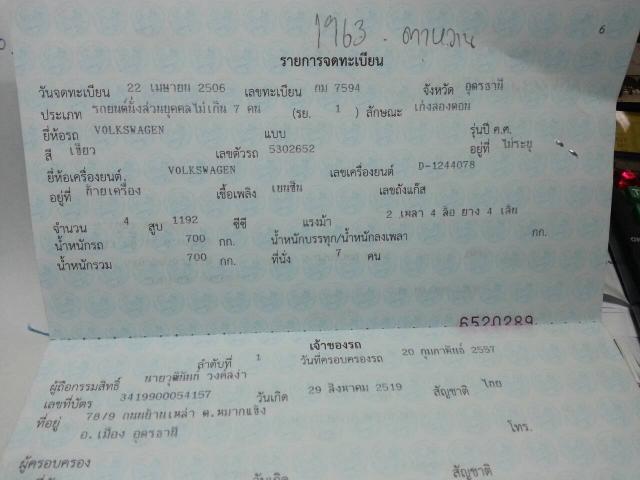 1963. ตาหวาน
6
รายการจดทะเบียน
วันจดทะเบียน 22 เมษายน 2506 เลขทะเบียน กม 7594 จังหวัด อุดรธานี
ประเภท รถยนต์นั่งส่วนบุคคลไม่เกิน 7 คน (รย. 1 ) ลักษณะ เก๋งสองตอน
ยี่ห้อรถ VOLKSWAGEN แบบ รุ่นปี ค.ศ.
สี เขียว เลขตัวรถ 5302652 อยู่ที่ ไม่ระบุ
ยี่ห้อเครื่องยนต์ VOLKSWAGEN เลขเครื่องยนต์ D-1244078
อยู่ที่ ท้ายเครื่อง เชื้อเพลิง เบนซิน เลขถังแก๊ส
จำนวน 4 สูบ 1192 ซีซี แรงม้า 2 เพลา 4 ล้อ ยาง 4 เส้น
น้ำหนักรถ 700 กก. น้ำหนักบรรทุก/น้ำหนักลงเพลา กก.
น้ำหนักรวม 700 กก. ที่นั่ง 7 คน
6520289
เจ้าของรถ
ลำดับที่ 1 วันที่ครอบครองรถ 20 กุมภาพันธ์ 2557
ผู้ถือกรรมสิทธิ์ นายวุฒินันท์ วงศ์ลงำ
เลขที่บัตร 3419900054157 วันเกิด 29 สิงหาคม 2519 สัญชาติ ไทย
ที่อยู่ 78/9 ถนนบ้านเหล่า ต.หมากแข้ง
อ.เมือง อุดรธานี โทร.
ผู้ครอบครอง
วันเกิด สัญชาติ